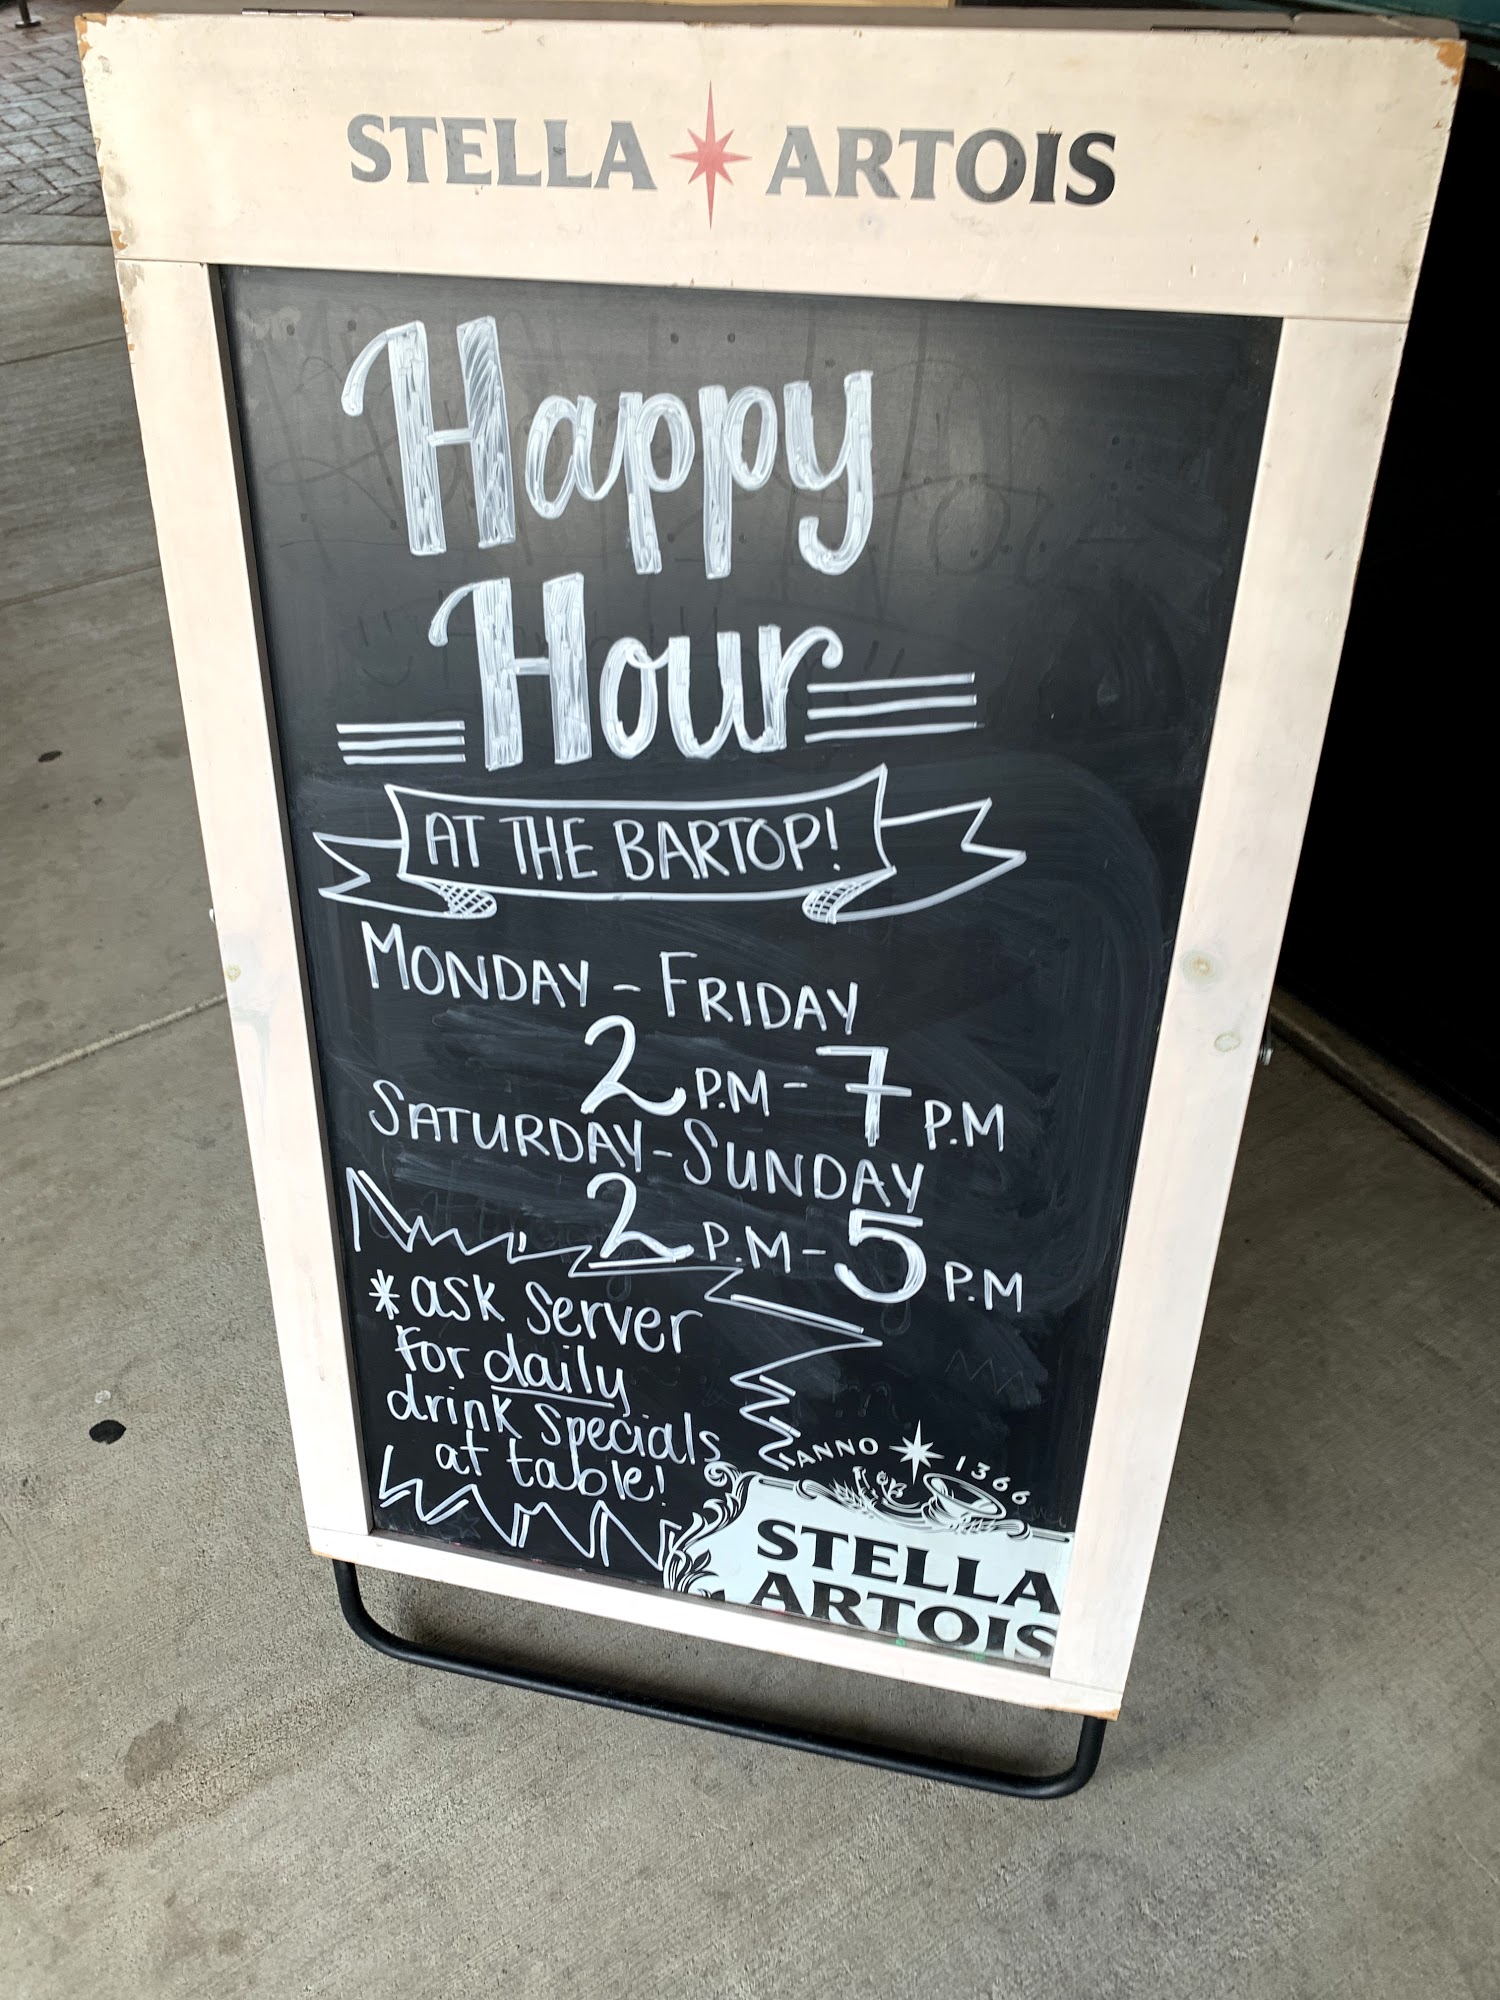 STELLA ARTOIS
Happy
Hour
AT THE BARTOP!
MONDAY - FRIDAY
2 P.M - 7 P.M
SATURDAY - SUNDAY
2 P.M - 5 P.M
* ask server
for daily
drink specials
at table!
ANNO 1366
STELLA
ARTOIS